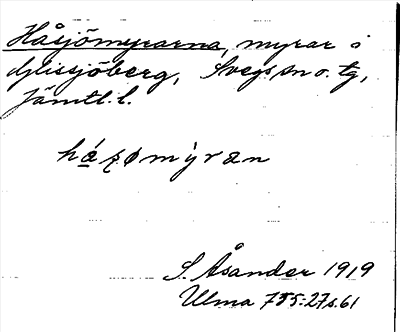 Håsjömyrarna, myrar i
Glissjöberg, Svegs sn o. tg,
Jämtl. l.
håʂømỳran
S. Åsander 1919
Ulma 755:27 s. 61